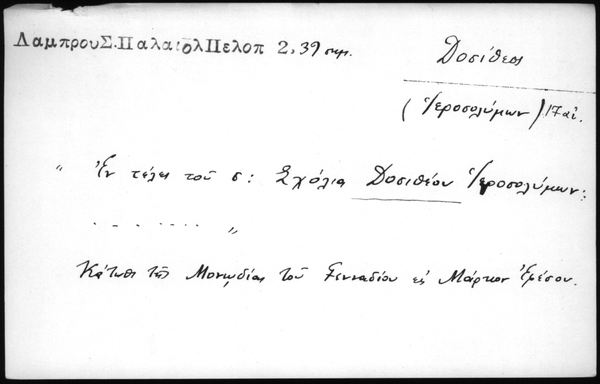 ΛαμπρουΣ.ΠαλαιολΠελοπ 2,39 σημ.
Δοσίθεος
(Ἱεροσολύμων) 17 αἰ.
" Ἐν τέλει τοῦ σ: Σχόλια Δοσιθέου Ἱεροσολύμων:
. . - . . . . . "
Κάτωθι τῆς Μονῳδίας τοῦ Γενναδίου εἰς Μάρκον Ἐφέσου.